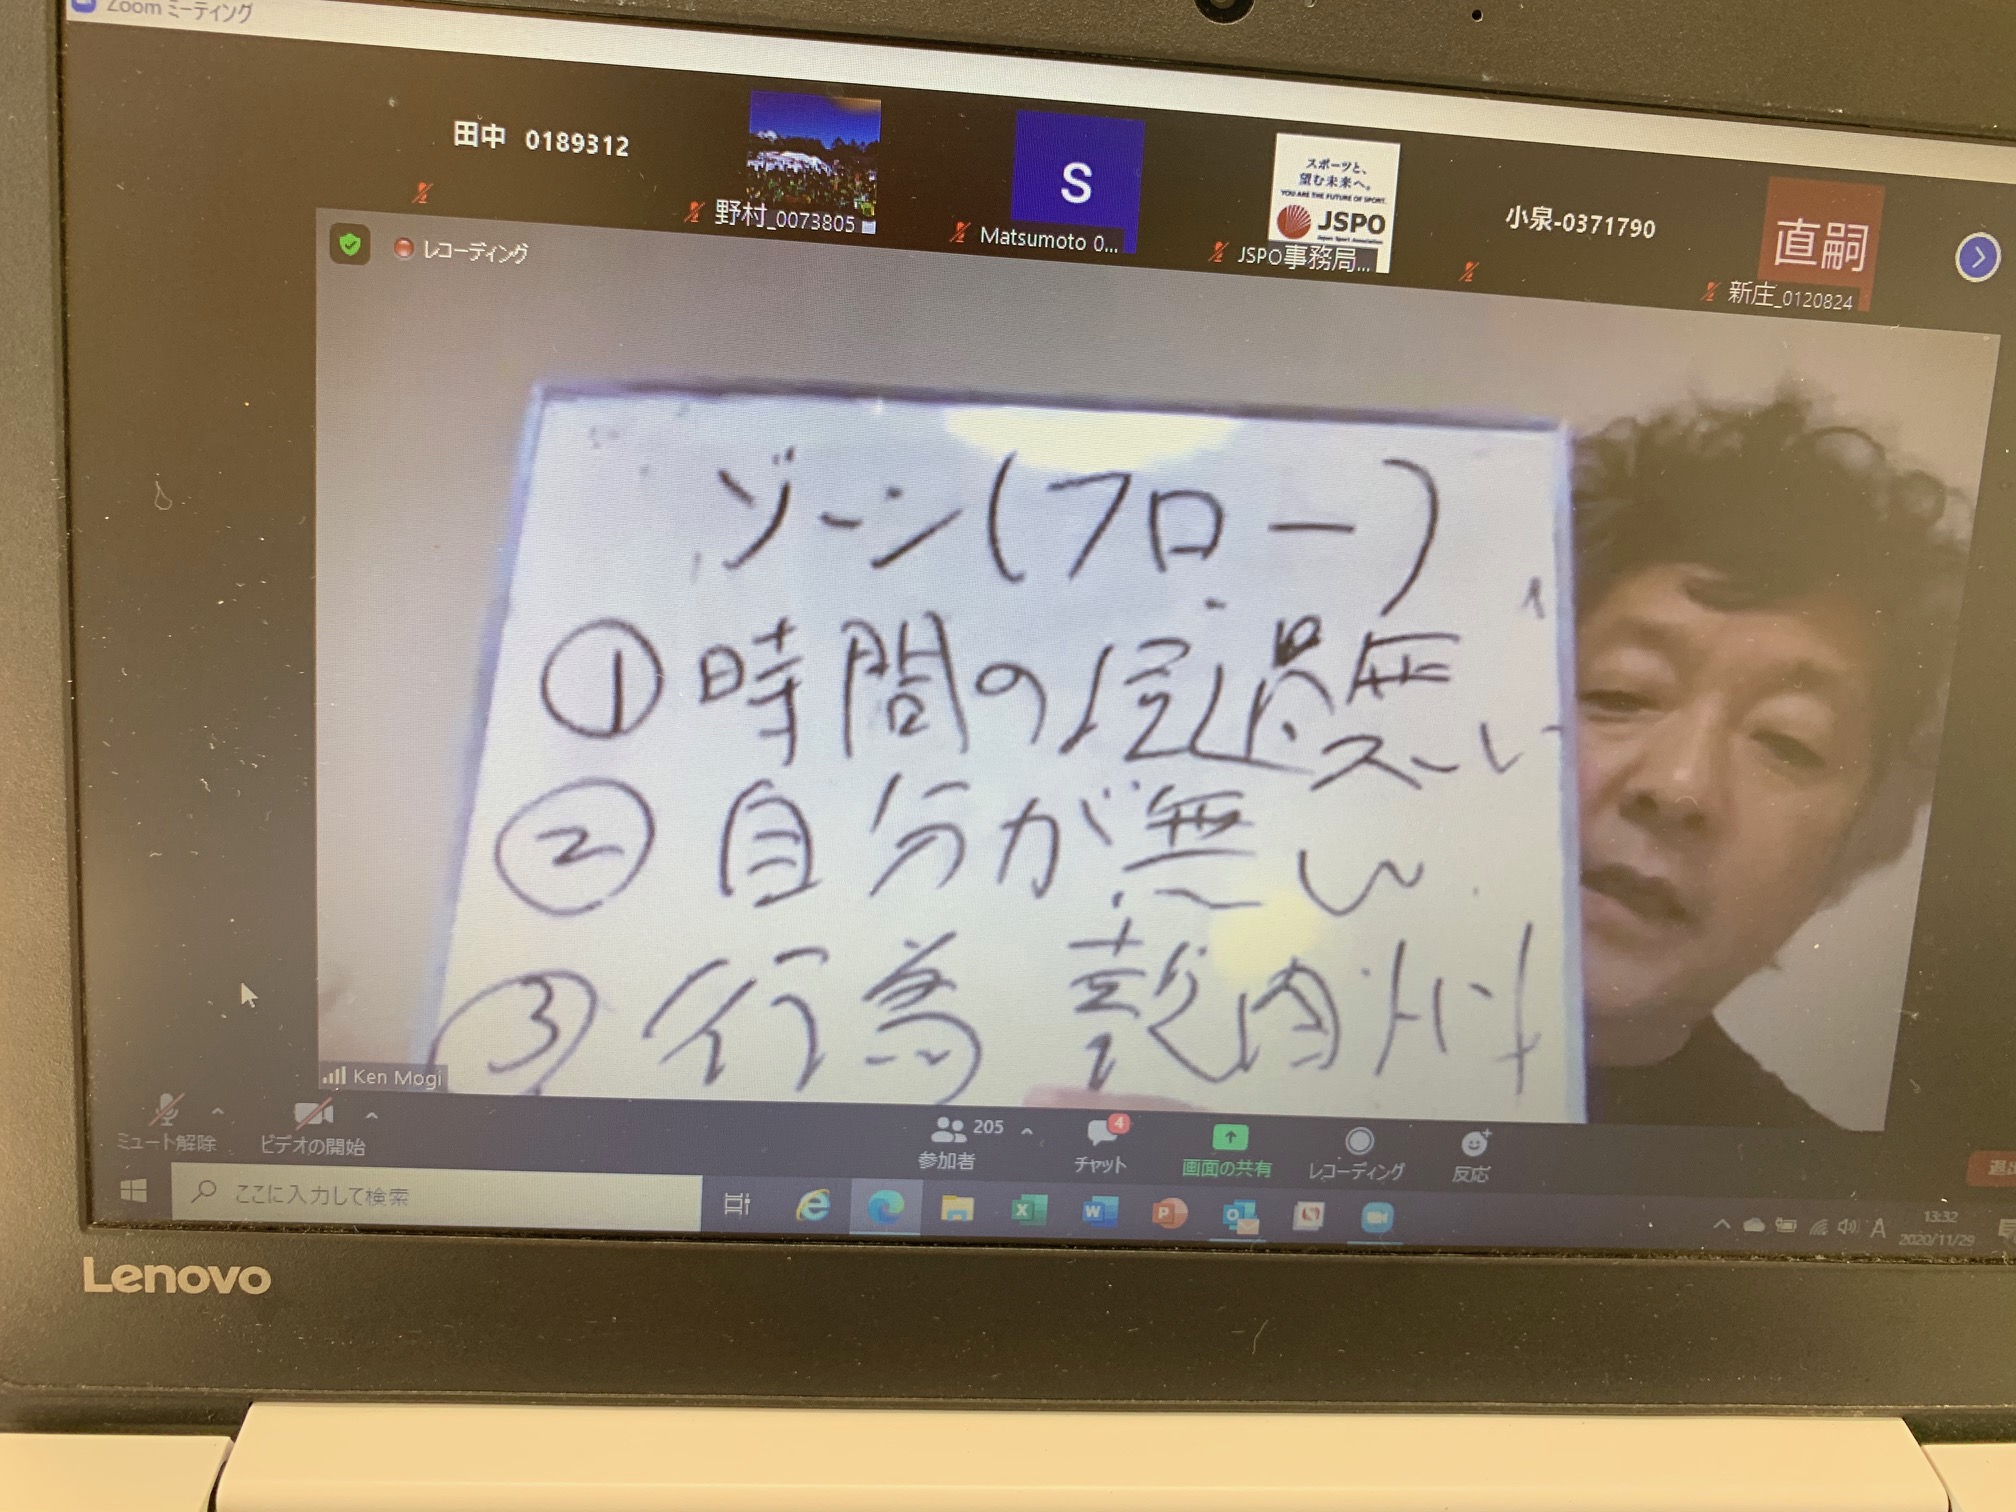 Zoom ミーティング
田中 0189312
野村_0073805
S
Matsumoto 0...
スポーツと、
望む未来へ。
YOU ARE THE FUTURE OF SPORT.
JSPO
Japan Sport Association
JSPO事務局...
小泉-0371790
直嗣
新庄_0120824
レコーディング
ゾーン(フロー)
①時間の経過無い
②自分が無い
③行為
Ken Mogi
ミュート解除
ビデオの開始
205
参加者
4
チャット
画面の共有
レコーディング
反応
ここに入力して検索
A
13:32
2020/11/29
Lenovo